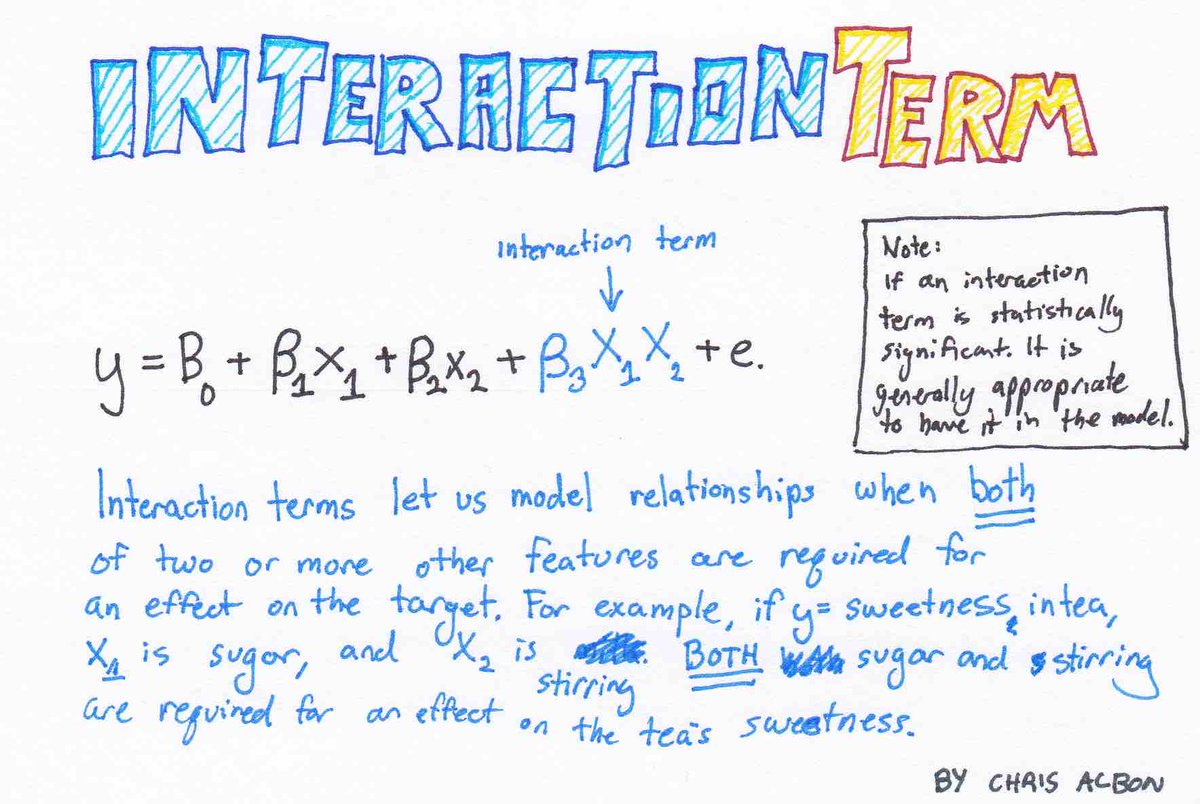 INTERACTION TERM
interaction term
y = B₀ + β₁X₁ + β₂X₂ + β₃X₁X₂ + e.
Note:
If an interaction
term is statistically
significant. It is
generally appropriate
to have it in the model.
Interaction terms let us model relationships when both
of two or more other features are required for
an effect on the target. For example, if y= sweetness in tea,
X₁ is sugar, and X₂ is stirring. BOTH sugar and stirring
are required for an effect on the tea's sweetness.
BY CHRIS ALBON